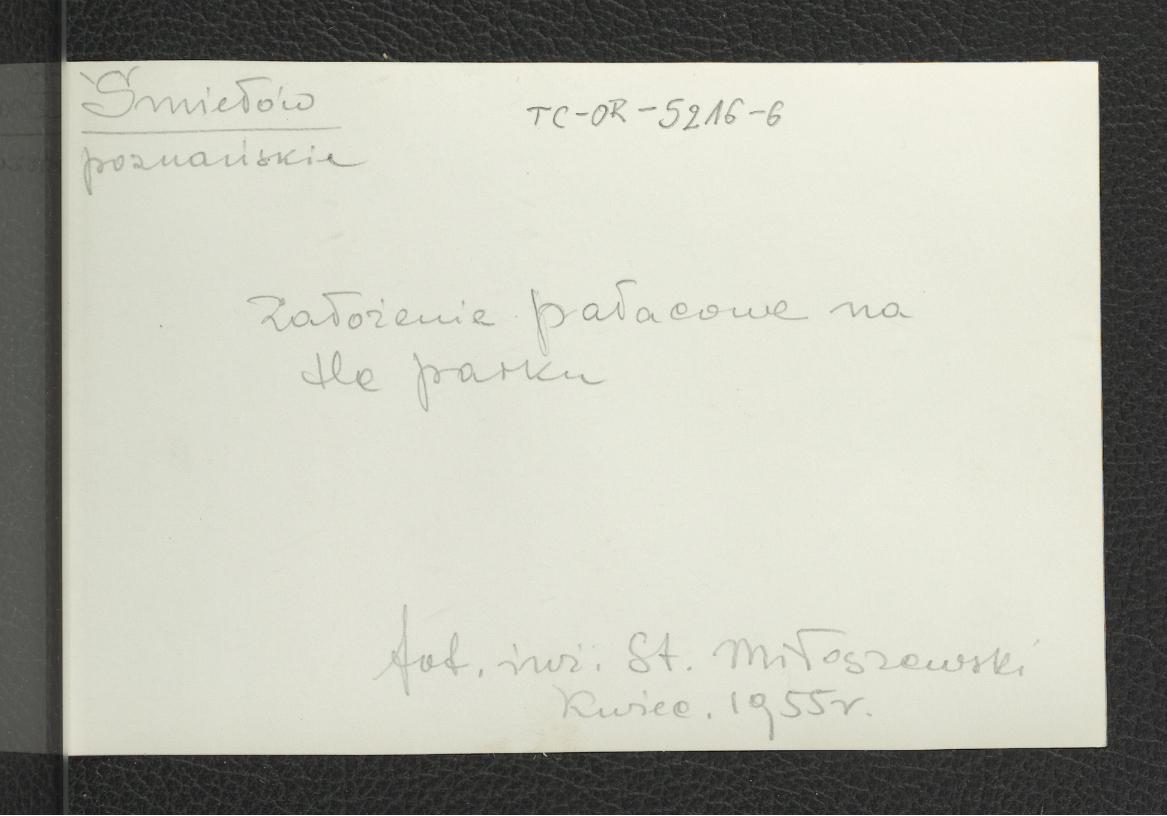 Śmiełów
TC-OR-5216-6
poznańskie
Założenie pałacowe na
tle parku
fot. inż. St. Miłoszewski
Kwiec. 1955r.